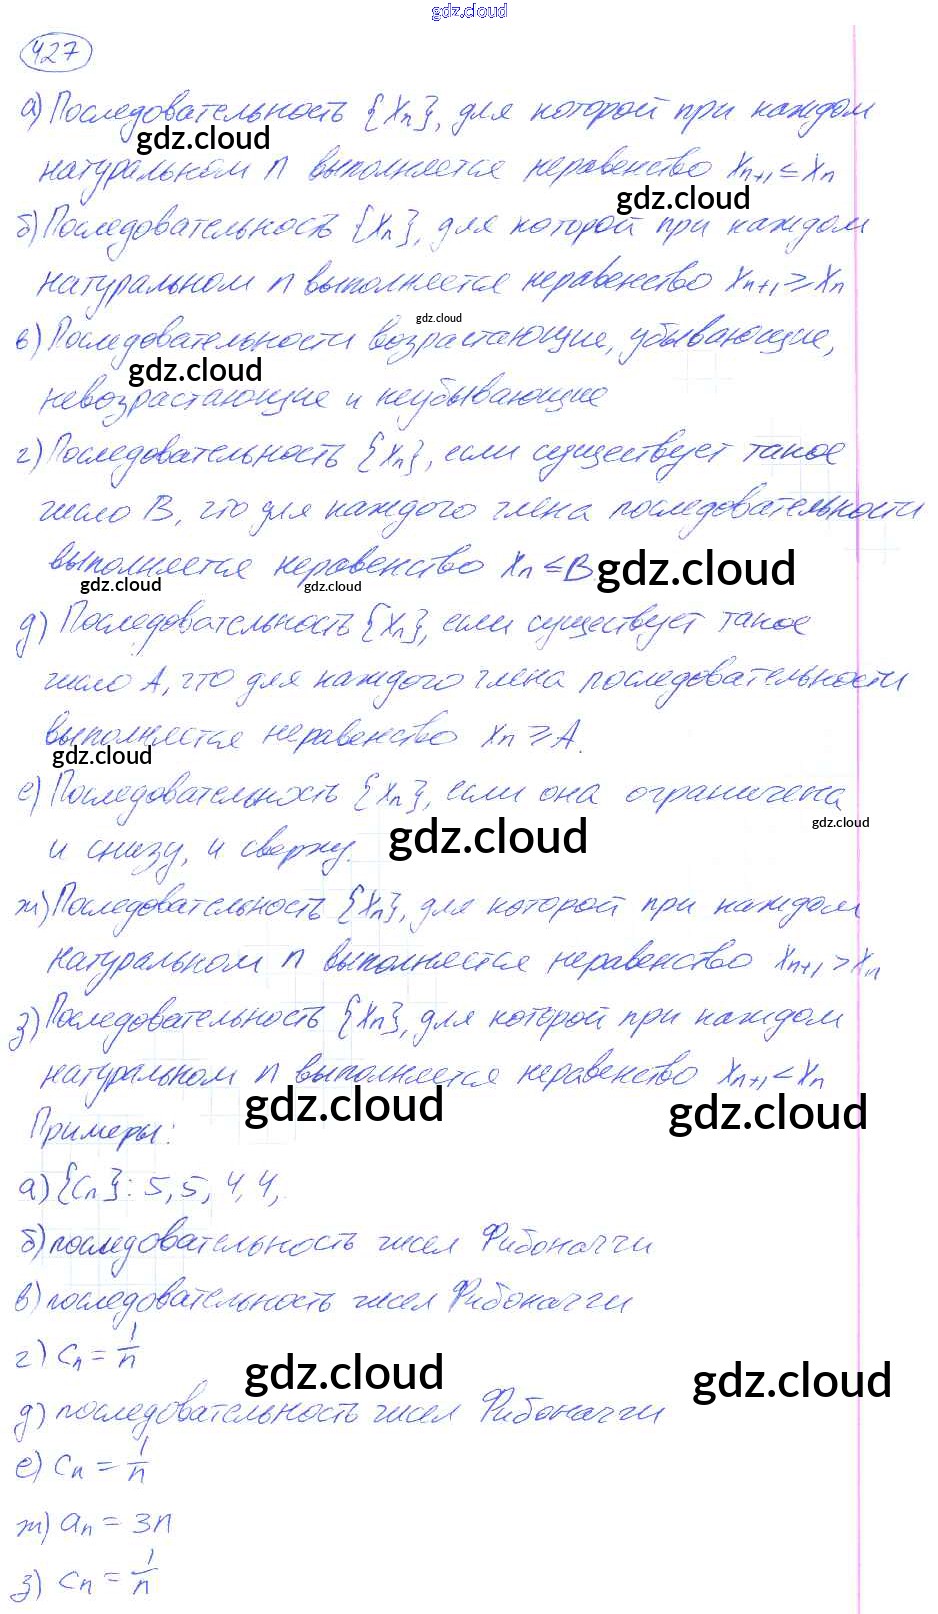 gdz.cloud
427
а) Последовательность {xₙ}, для которой при каждом
gdz.cloud
натуральном n выполняется неравенство xₙ₊₁ ≤ xₙ
gdz.cloud
б) Последовательность {xₙ}, для которой при каждом
натуральном n выполняется неравенство xₙ₊₁ ≥ xₙ
gdz.cloud
в) Последовательности возрастающие, убывающие,
gdz.cloud
невозрастающие и неубывающие
г) Последовательность {xₙ}, если существует такое
число B, что для каждого члена последовательности
выполняется неравенство xₙ ≤ B
gdz.cloud
gdz.cloud
gdz.cloud
д) Последовательность {xₙ}, если существует такое
число A, что для каждого члена последовательности
выполняется неравенство xₙ ≥ A.
gdz.cloud
е) Последовательность {xₙ}, если она ограничена
gdz.cloud
gdz.cloud
и снизу, и сверху.
ж) Последовательность {xₙ}, для которой при каждом
натуральном n выполняется неравенство xₙ₊₁ > xₙ
з) Последовательность {xₙ}, для которой при каждом
натуральном n выполняется неравенство xₙ₊₁ < xₙ
gdz.cloud
gdz.cloud
Примеры:
а) {cₙ}: 5, 5, 4, 4,
б) последовательность чисел Фибоначчи
в) последовательность чисел Фибоначчи
г) cₙ = 1/n
gdz.cloud
gdz.cloud
д) последовательность чисел Фибоначчи
е) cₙ = 1/n
ж) aₙ = 3n
з) cₙ = 1/n